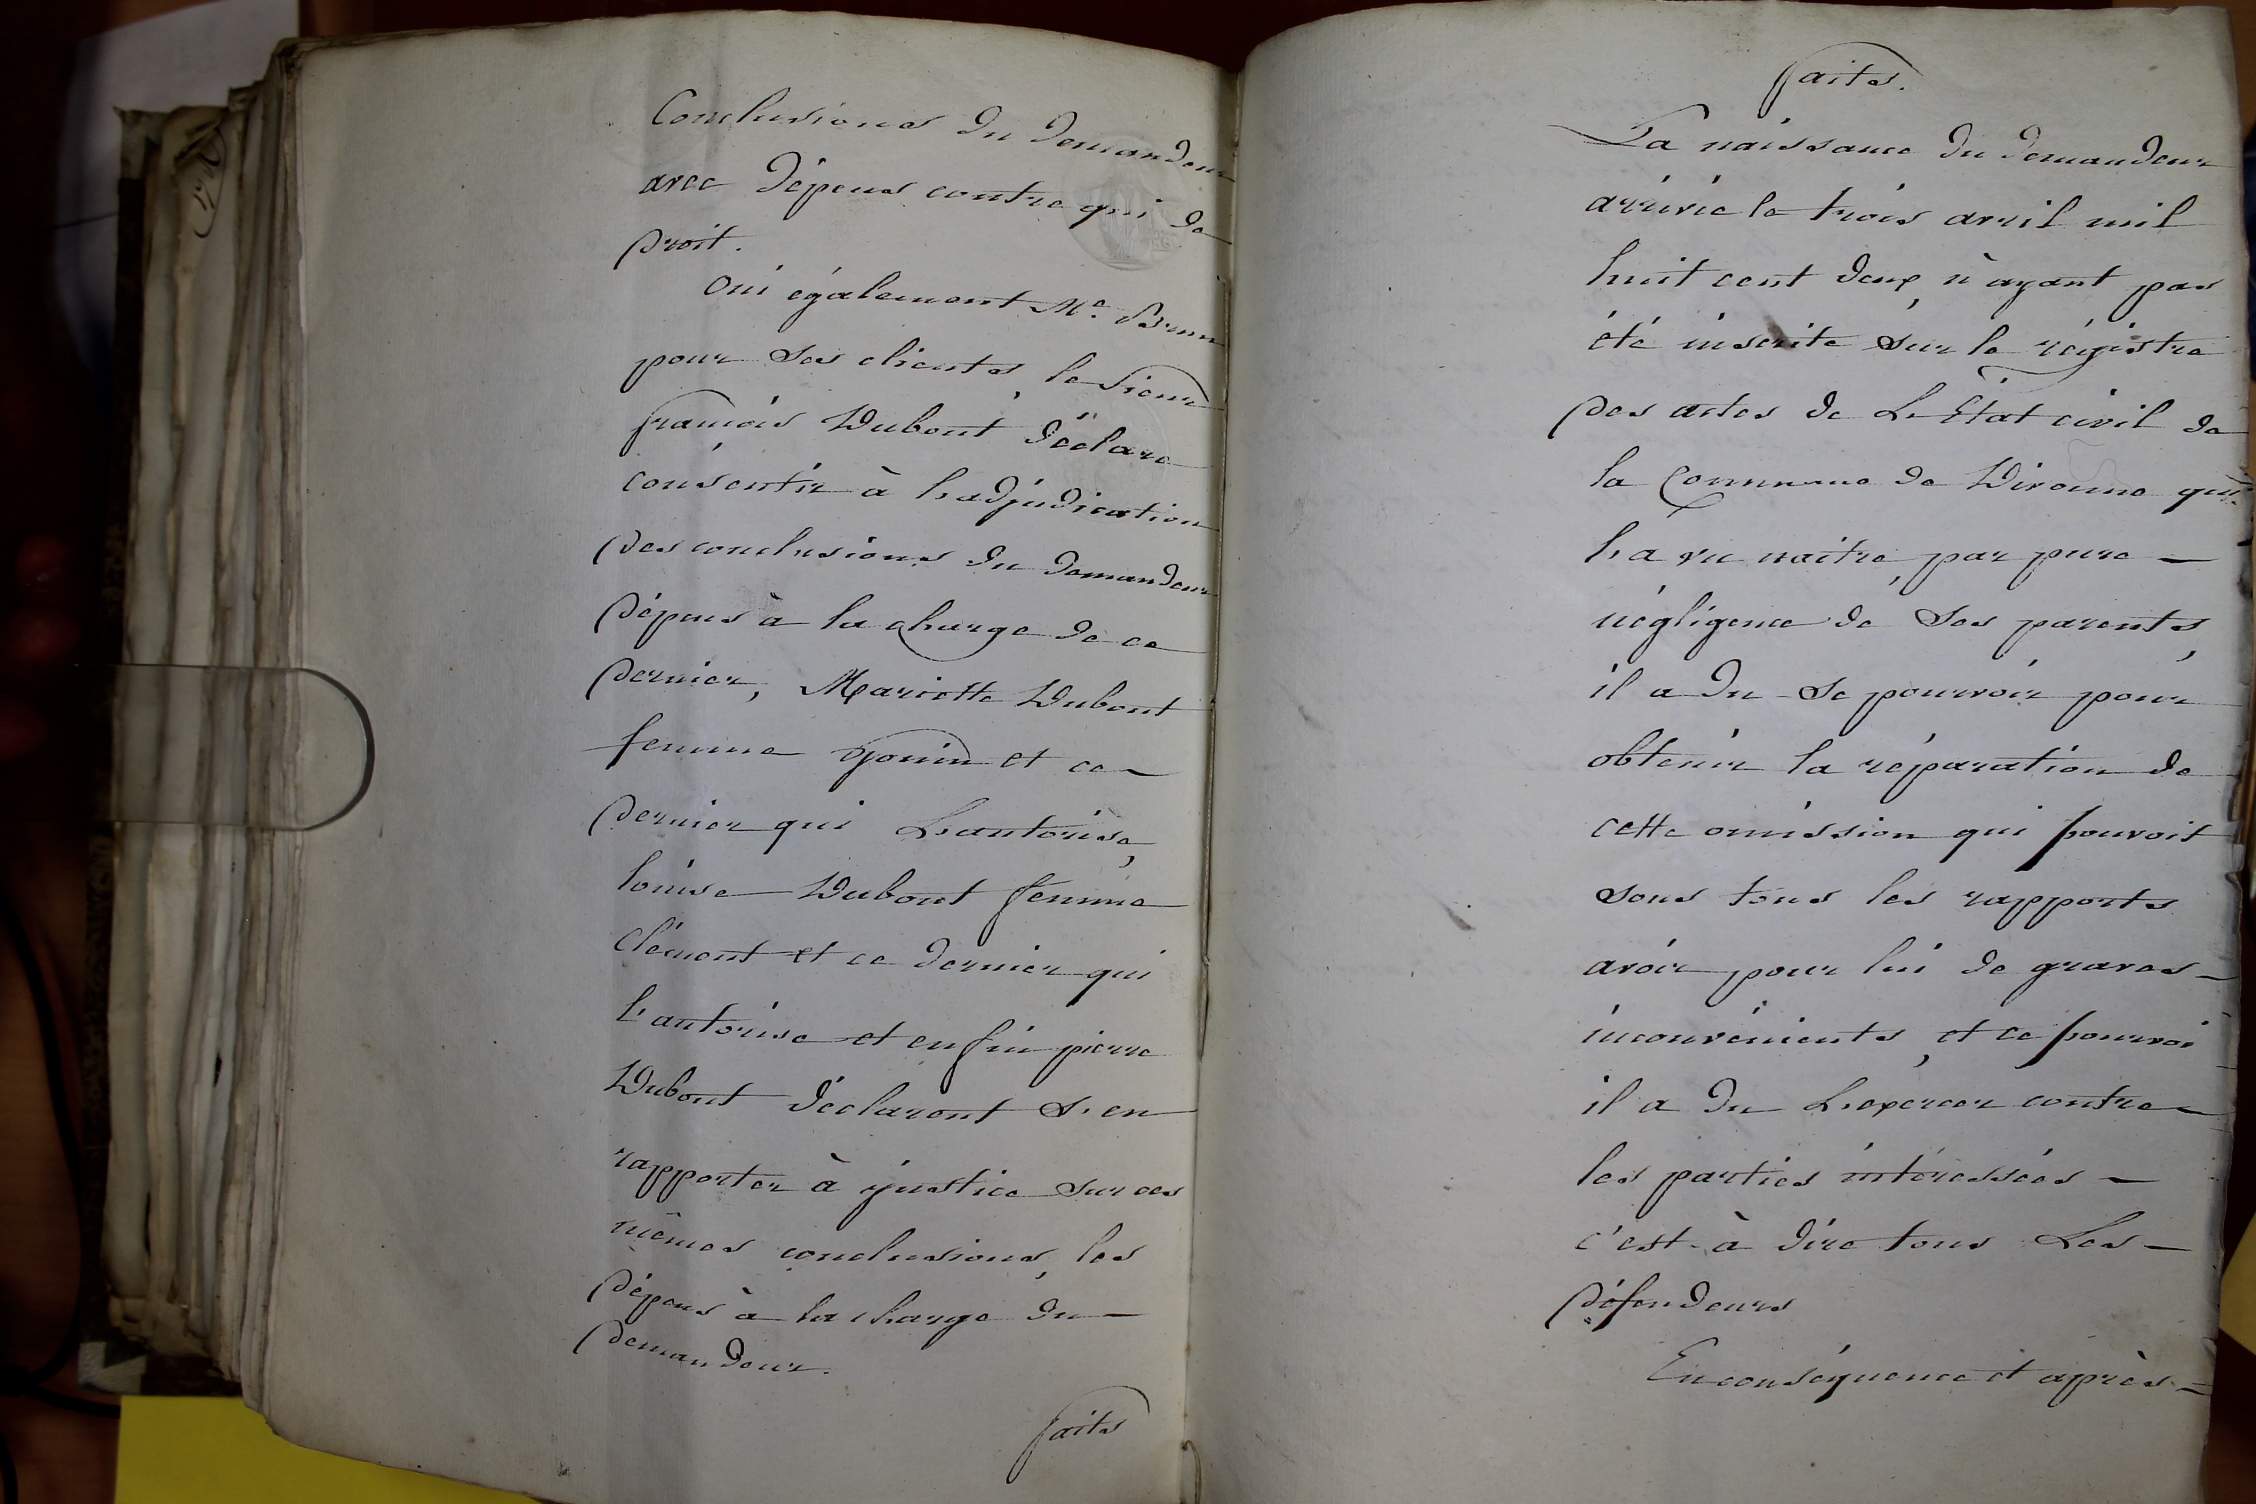 Conclusions du demandeur
avec dépens contre qui de
droit.
Oui également Me. Brun
pour ses clients, le sieur
françois Dubout déclare
consentir à l'adjudication
des conclusions du demandeur
dépens à la charge de ce
dernier, Mariette Dubout
femme Gonin et ce
dernier qui L'autorise,
louise Dubout femme
Clément et ce dernier qui
l'autorise et enfin pierre
Dubout déclarent s'en
rapporter à justice sur ces
mêmes conclusions, les
dépens à la charge du
demandeur.
faits
faits.
La naissance du demandeur
arrivée le trois avril mil
huit cent deux, n'ayant pas
été inscrite sur le régistre
des actes de L'Etat civil de
la Commune de qui
l'a vu naitre, par pure
négligence de ses parents,
il a du se pourvoir pour
obtenir la réparation de
cette omission qui pouvoit
sous tous les rapports
avoir pour lui de graves
inconvénients, et ce pourvoi
il a du L'exercer contre
les parties intéressées
c'est-à dire tous Les
défendeurs
En conséquence et après